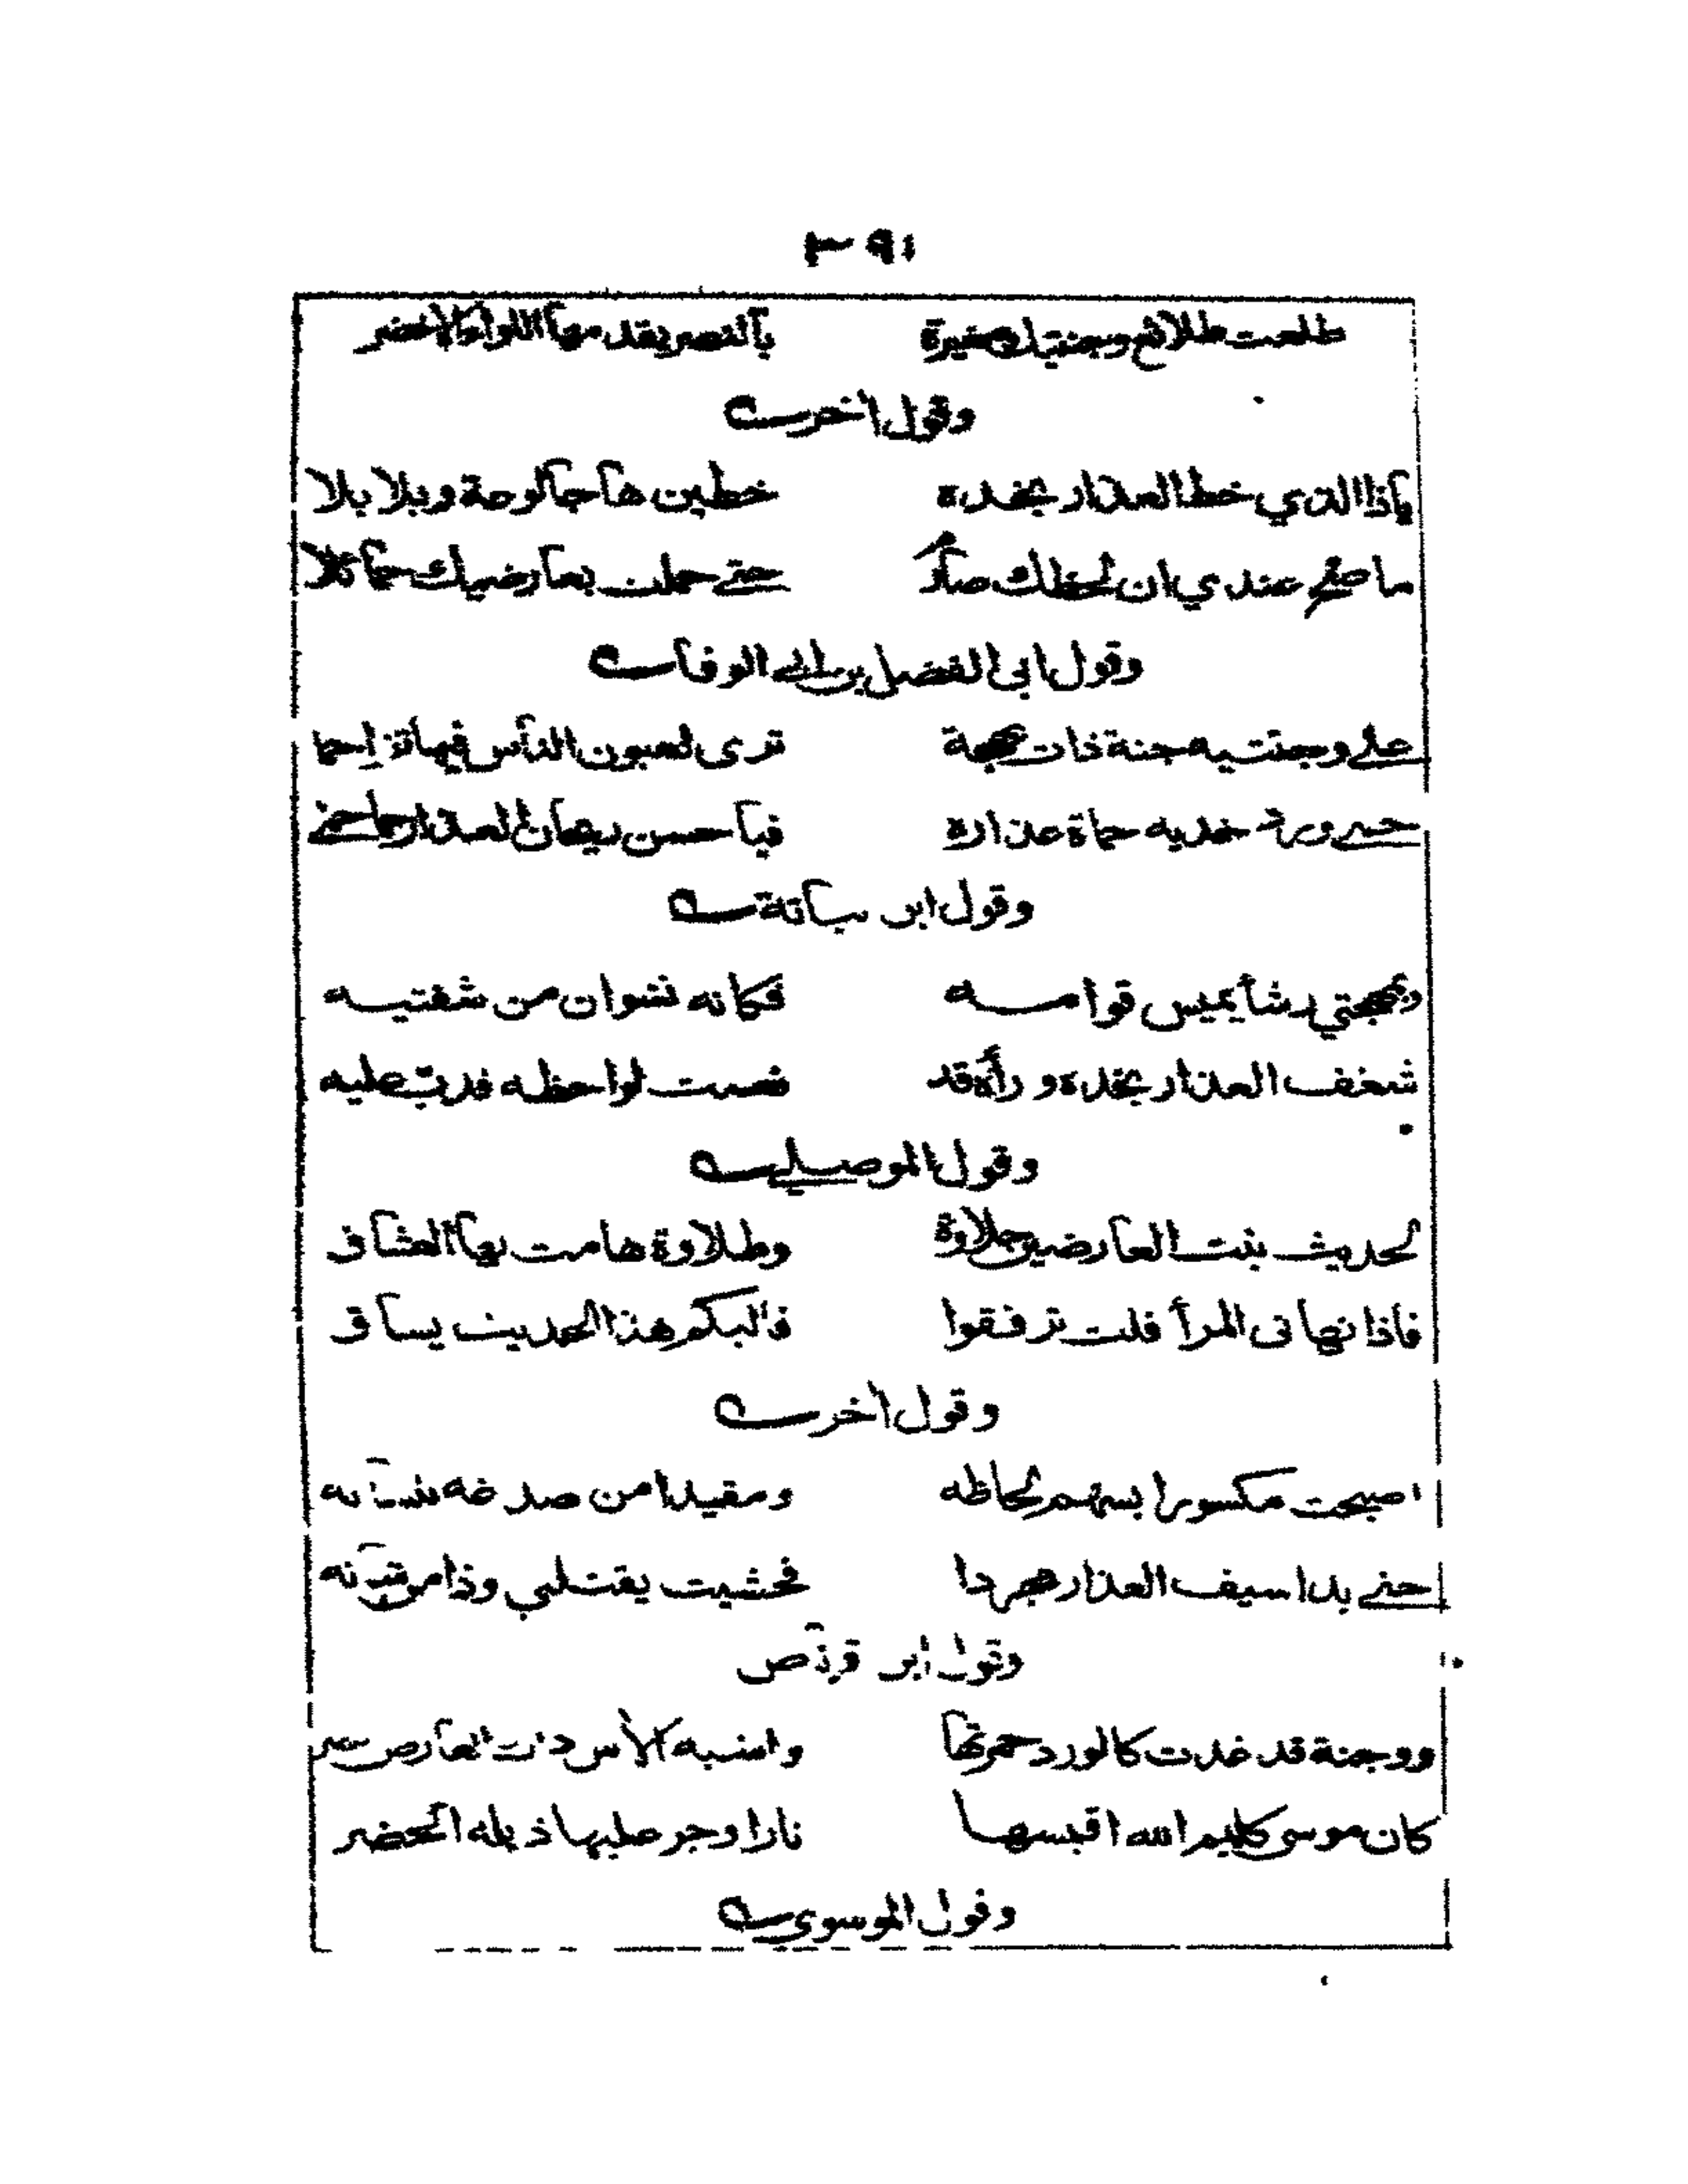 ٣٩١
طلعت طلائع وجنتيك مغيرة بالنصر يقدمها اللواء الاخضر
وقول اخر
ياذا الذي خط العذار بخده خطين هاجا لوعة وبلابلا
ما صح عندي ان لحظك صارم حتى حملت بعارضيك حمائلا
وقول ابي الفضل بن ابي الوفا
على وجنتيه جنة ذات بهجة ترى لعيون الناس فيها تزاحما
حمى ورد خديه حماة عذاره فيا حسن ريحان العذار حماحمى
وقول ابن نباتة
وبمهجتي رشأ يميس قوامه فكانه نشوان من شفتيه
شغف العذار بخده ورآه قد نعست لواحظه فدب عليه
وقول الموصلي
لحديث بنت العارضين حلاوة وطلاوة هامت بها العشاق
فاذا نهاني المرأ قلت ترفقوا فاليكم هذا الحديث يساق
وقول اخر
اصبحت مكسورا بسهم لحاظه ومقيدا من صدغه
حتى بدا سيف العذار مجردا فخشيت يقتلني وذا من
وقول ابن قرناص
ووجنة قد غدت كالورد حمرتها كالاس العارض
كان موسى كليم الله اقبسها نارا وجر عليها ذيله الخضر
وقول الموسوي